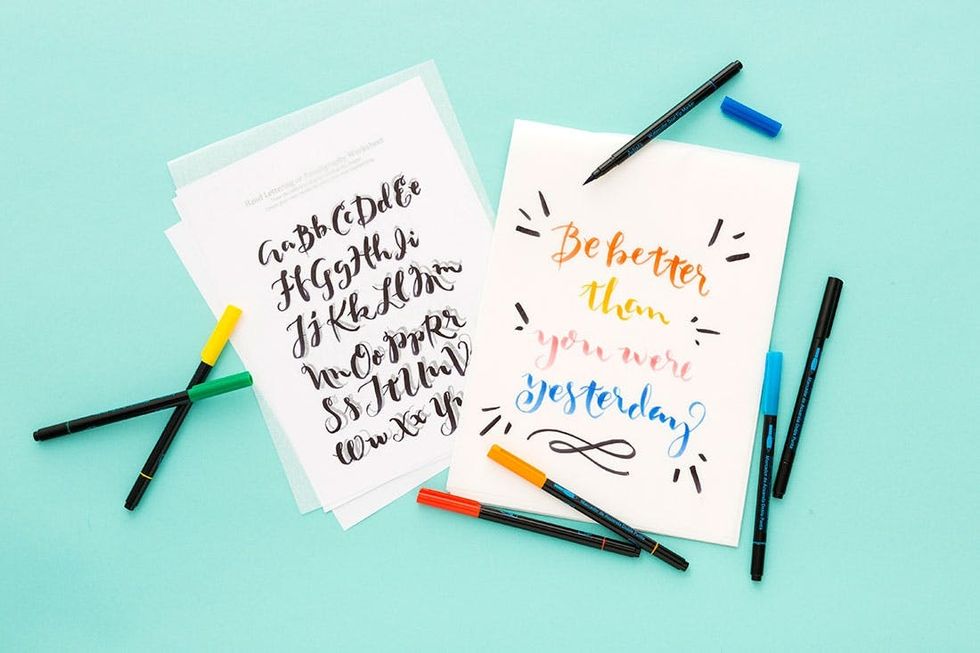 Hand Lettering or Faux Calligraphy Worksheet
Aa Bb Cc Dd Ee
Ff Gg Hh Ii
Jj Kk Ll Mm
Nn Oo Pp Rr
Ss Tt Uu Vv
Ww Xx Yy
Be better
than
you were
yesterday